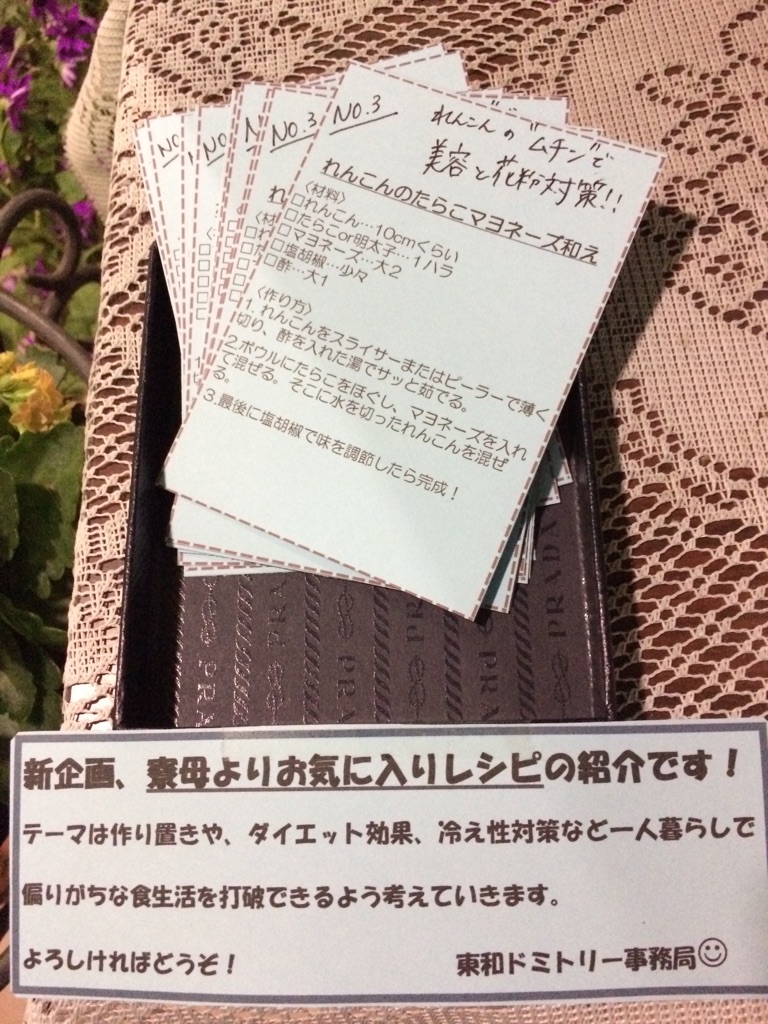 NO.3
れんこんの"ムチン"で
美容と花粉対策!!
れんこんのたらこマヨネーズ和え
〈材料〉
□れんこん…10cmくらい
□たらこor明太子…1ハラ
□マヨネーズ…大2
□塩胡椒…少々
□酢…大1
〈作り方〉
1.れんこんをスライサーまたはピーラーで薄く
切り、酢を入れた湯でサッと茹でる。
2.ボウルにたらこをほぐし、マヨネーズを入れ
て混ぜる。そこに水を切ったれんこんを混ぜ
る。
3.最後に塩胡椒で味を調節したら完成！
NO.3
NO
NO
PRADA
PRADA
PRA
PRA
PRA
新企画、寮母よりお気に入りレシピの紹介です！
テーマは作り置きや、ダイエット効果、冷え性対策など一人暮らしで
偏りがちな食生活を打破できるよう考えていきます。
よろしければどうぞ！
東和ドミトリー事務局☺